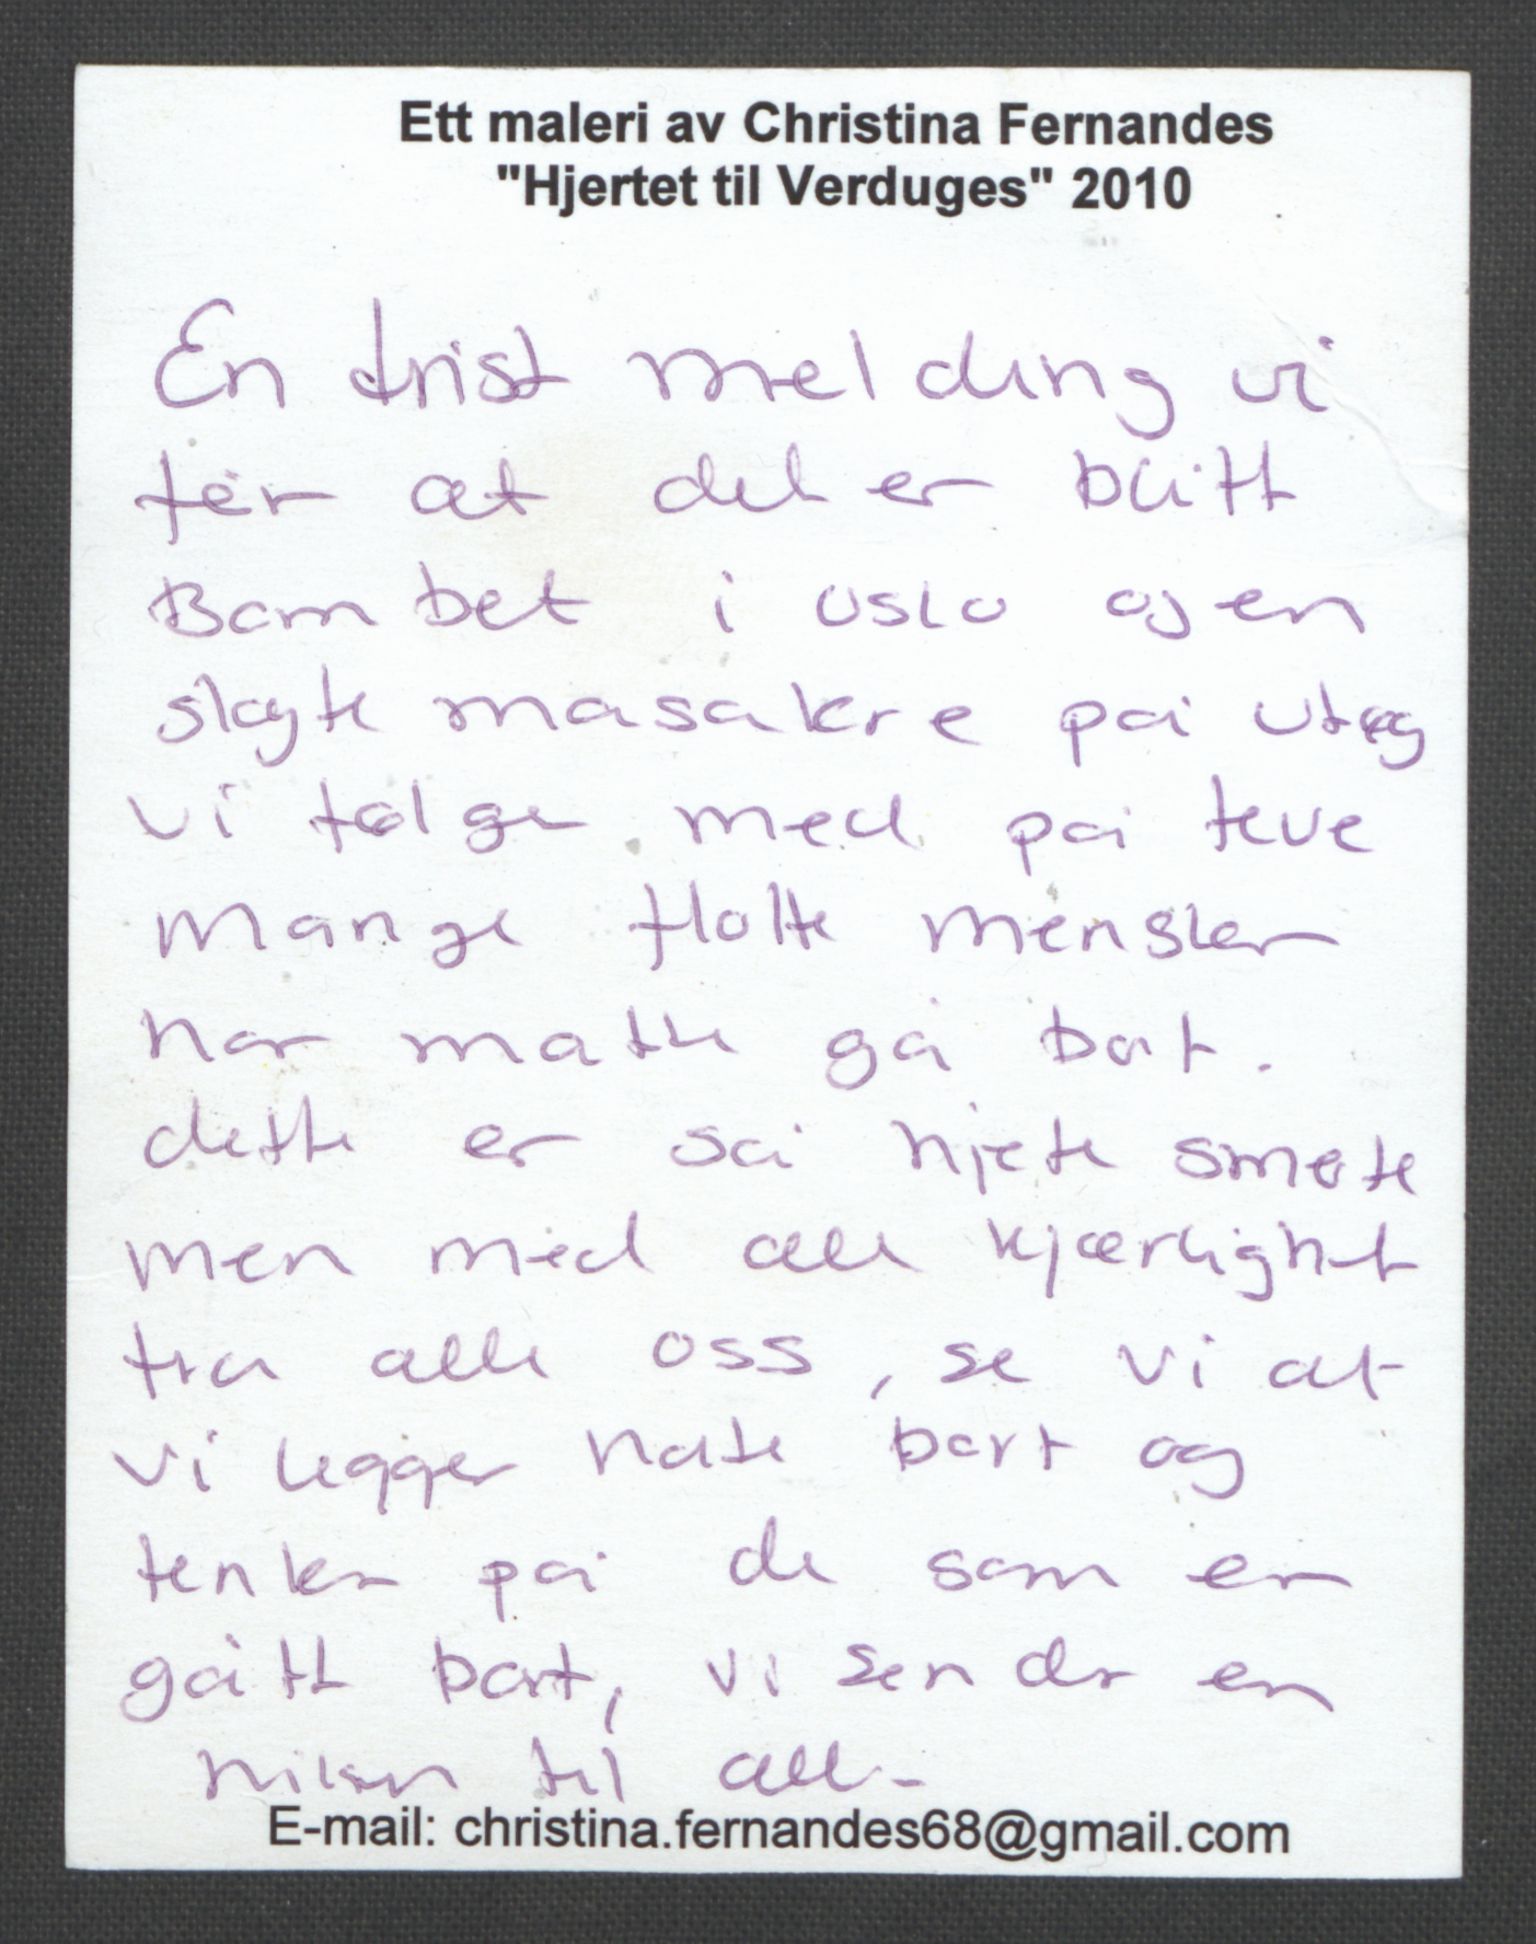 Ett maleri av Christina Fernandes
"Hjertet til Verduges" 2010
En trist melding vi
fér at det er blitt
Bombet i oslo og en
slagte masakre på utøg
vi følger med på teve
mange flotte mensker
har matte gå bort.
dette er så hjete smøte
men med alle kjærlighet
fra alle oss, se vi at
vi legger hate bort og
tenker på de som er
gått bort, vi sender en
hilsen til alle
E-mail: christina.fernandes68@gmail.com